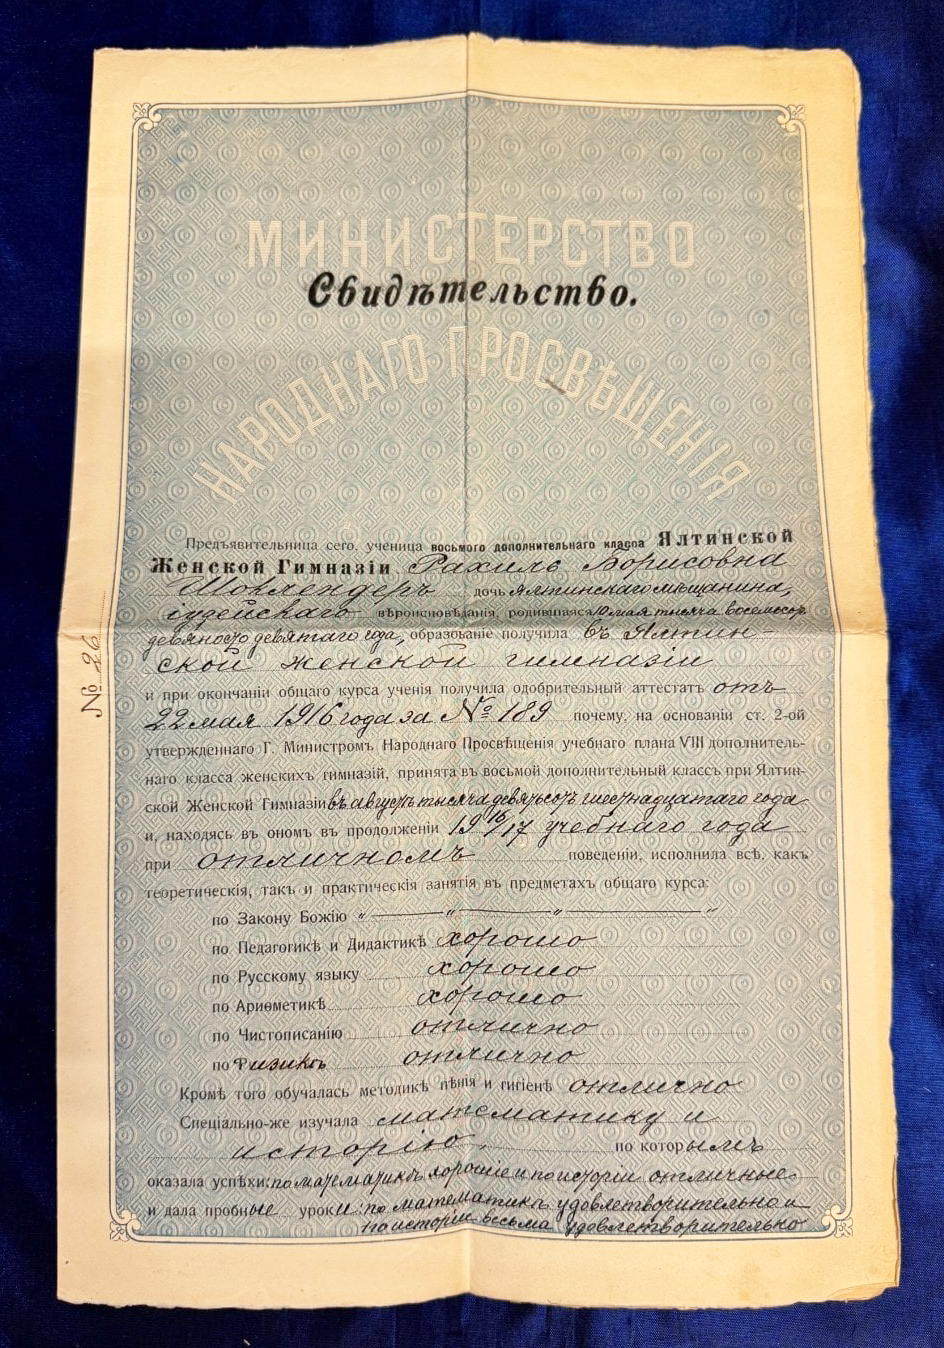 МИНИСТЕРСТВО
Свидѣтельство.
НАРОДНАГО ПРОСВѢЩЕНІЯ
Предъявительница сего, ученица восьмого дополнительнаго класса Ялтинской
Женской Гимназіи Рахиль Борисовна
Шоклендеръ дочь ялтинскаго мѣщанина,
іудейскаго вѣроисповѣданія, родившаяся 10 мая тысяча восемьсотъ
девяносто девятаго года, образованіе получила въ Ялтин-
ской женской гимназіи
и при окончаніи общаго курса ученія получила одобрительный аттестатъ отъ
22 мая 1916 года за № 189 почему, на основаніи ст. 2-ой
утвержденнаго Г. Министромъ Народнаго Просвѣщенія учебнаго плана VIII дополнитель-
наго класса женскихъ гимназій, принята въ восьмой дополнительный классъ при Ялтин-
ской Женской Гимназіи въ августѣ тысяча девятьсотъ шестнадцатаго года
и, находясь въ ономъ въ продолженіи 1916/17 учебнаго года
при отличномъ поведеніи, исполнила всѣ, какъ
теоретическія, такъ и практическія занятія въ предметахъ общаго курса:
по Закону Божію " — " — " — "
по Педагогикѣ и Дидактикѣ хорошо
по Русскому языку хорошо
по Ариѳметикѣ хорошо
по Чистописанію отлично
по Физикѣ отлично
Кромѣ того обучалась методикѣ пѣнія и гигіенѣ отлично
Спеціально-же изучала математику и
исторію, по которымъ
оказала успѣхи: по математикѣ хорошіе и по исторіи отличные
и дала пробные уроки: по математикѣ удовлетворительно и
по исторіи весьма удовлетворительно
№ 26